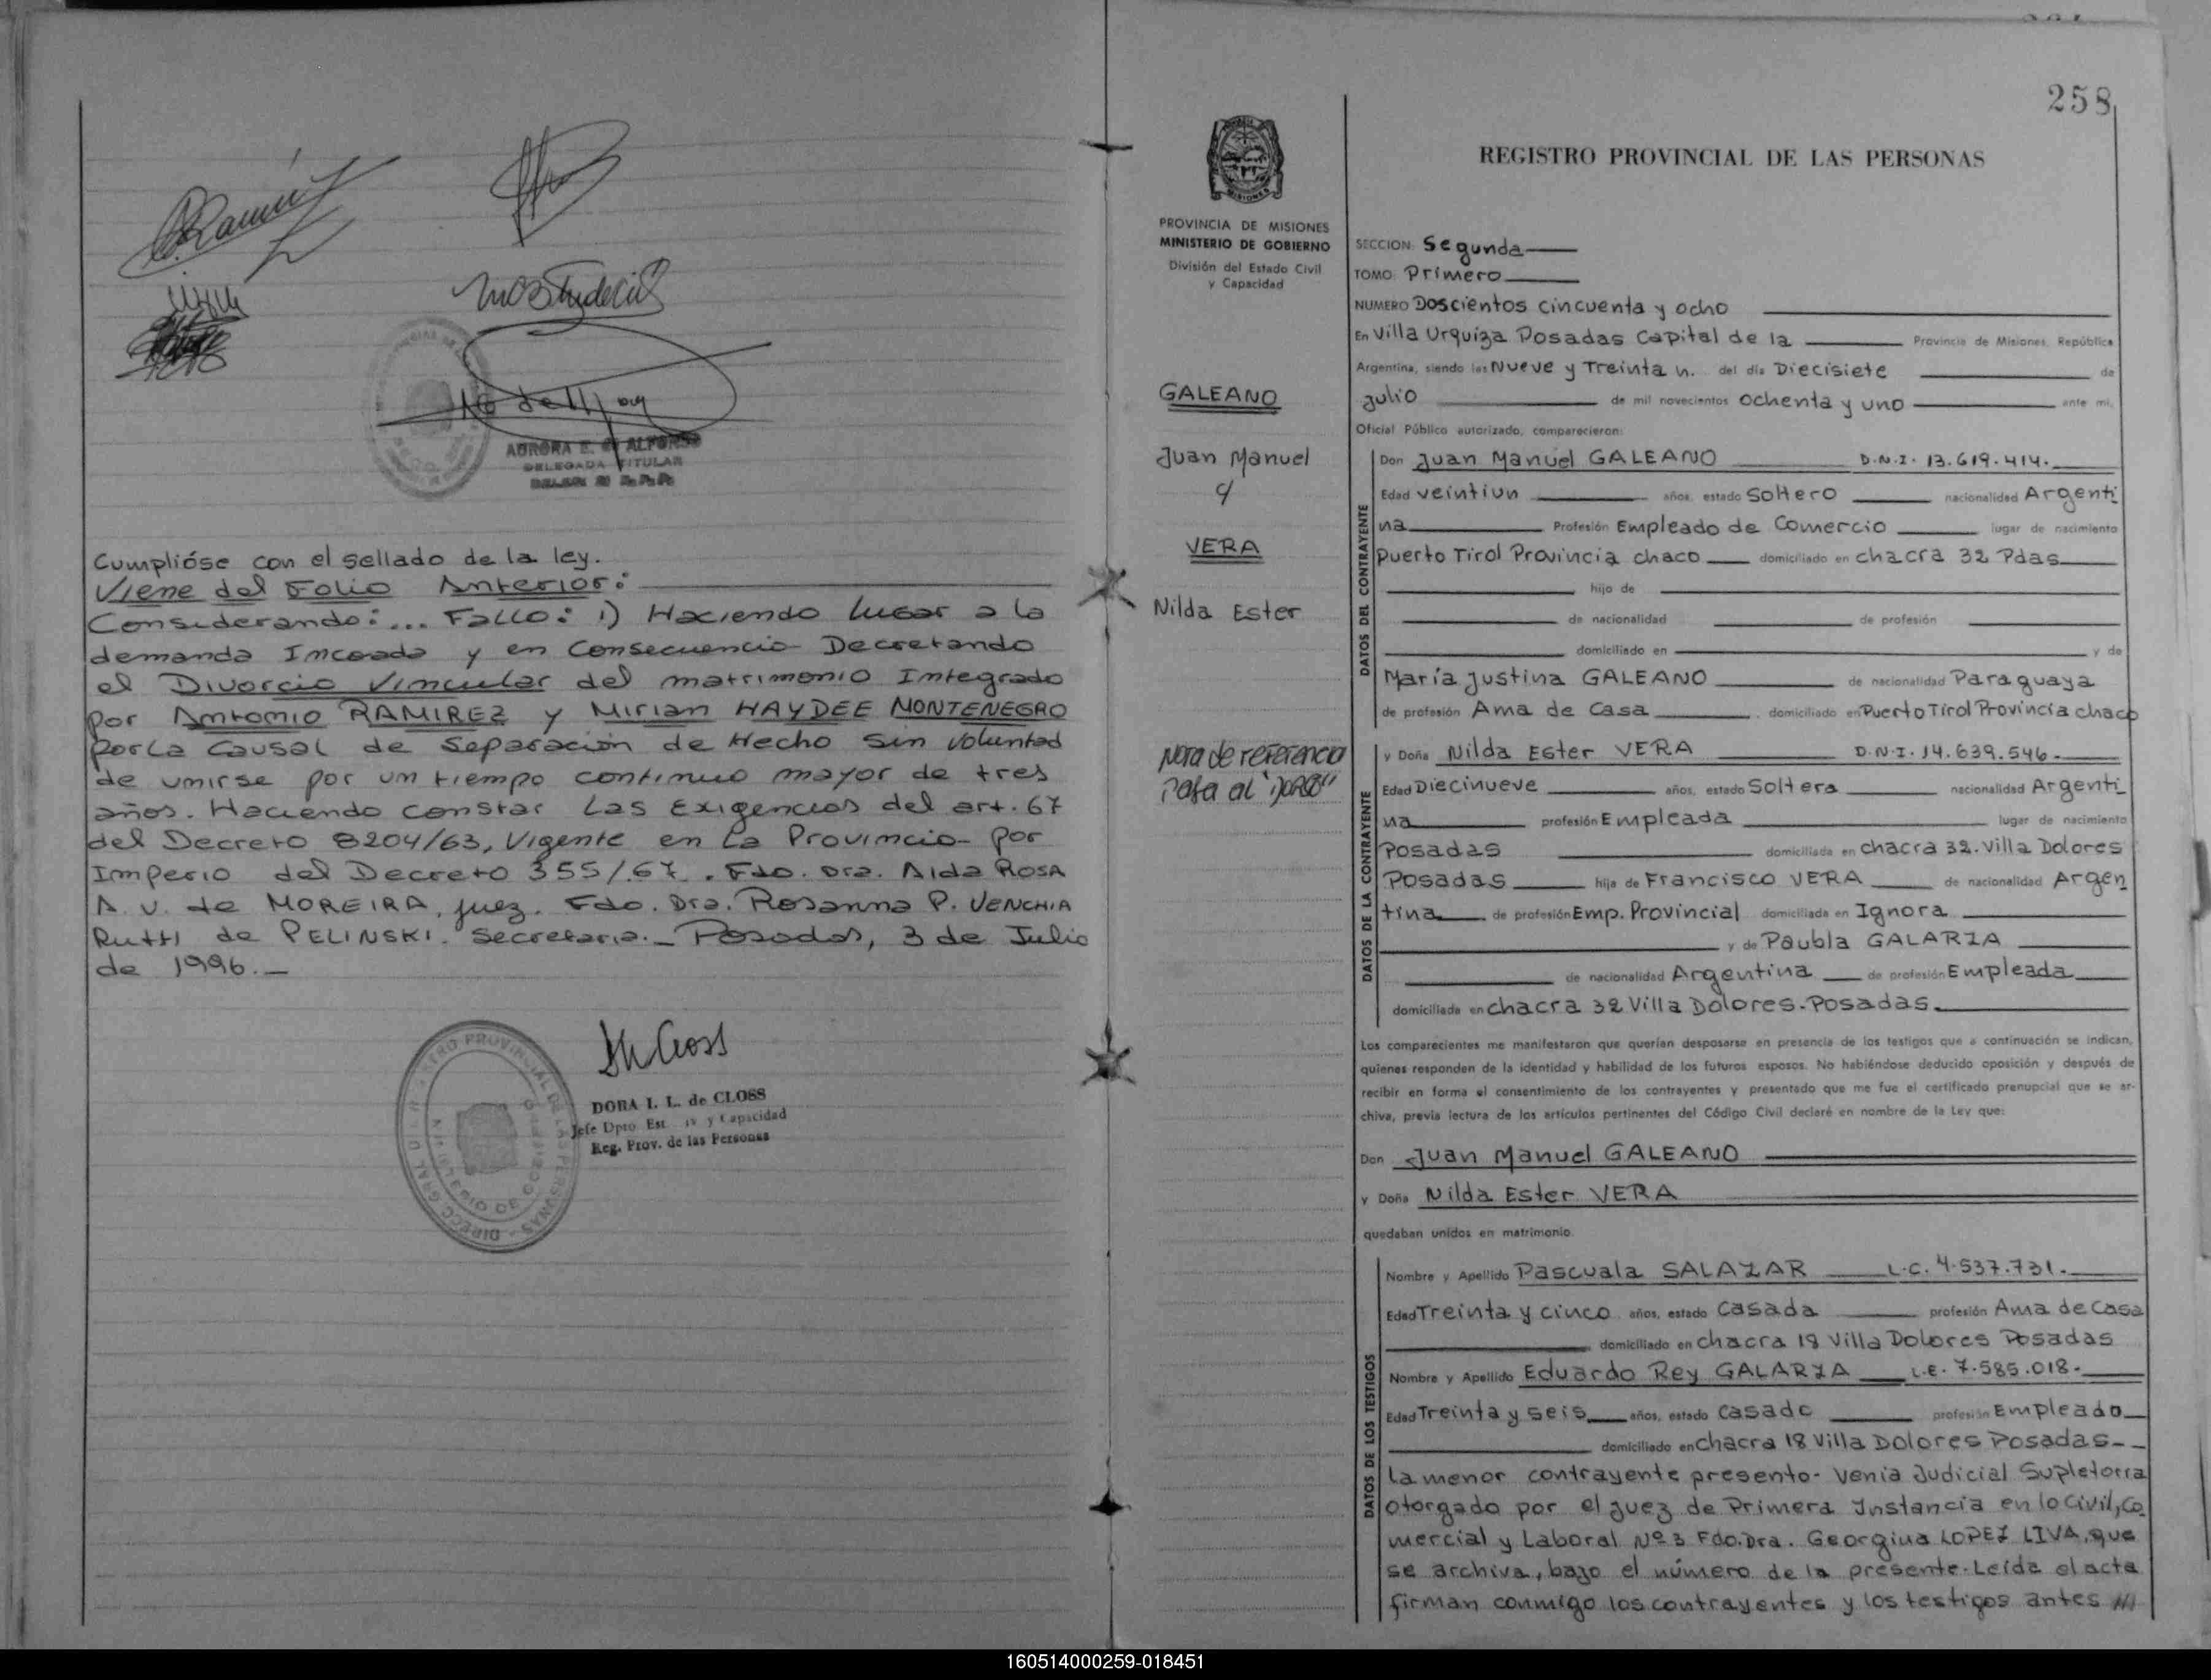 Cumplióse con el sellado de la ley.
Viene del Folio Anterior:
Considerando:... Fallo: 1) Haciendo lugar a la
demanda Incoada y en Consecuencia Decretando
el Divorcio Vincular del matrimonio Integrado
por Antonio RAMIREZ y Mirian HAYDEE MONTENEGRO
por La Causal de Separación de Hecho Sin Voluntad
de unirse por un tiempo continuo mayor de tres
años. Haciendo constar Las Exigencias del art. 67
del Decreto 8204/63, Vigente en La Provincia por
Imperio del Decreto 355/67. Fdo. Dra. Aida ROSA
A. V. de MOREIRA, juez. Fdo. Dra. Rosanna P. VENCHIA
Rutti de PELINSKI. Secretaria._ Posadas, 3 de Julio
de 1996._
DORA I. L. de CLOSS
Jefe Dpto. Est. y Capacidad
Reg. Prov. de las Personas
258
REGISTRO PROVINCIAL DE LAS PERSONAS
PROVINCIA DE MISIONES
MINISTERIO DE GOBIERNO
División del Estado Civil
y Capacidad
GALEANO
Juan Manuel
c/
VERA
Nilda Ester
Nota de referencia
Pasa al "Dorso"
SECCION: Segunda
TOMO: Primero
NUMERO Doscientos cincuenta y ocho
En Villa Urquiza Posadas Capital de la Provincia de Misiones, República
Argentina, siendo las Nueve y Treinta h. del día Diecisiete de
Julio de mil novecientos Ochenta y uno ante mi,
Oficial Público autorizado, comparecieron:
DATOS DEL CONTRAYENTE
Don Juan Manuel GALEANO D.N.I. 13.619.414.
Edad veintiun años, estado Soltero nacionalidad Argenti
na Profesión Empleado de Comercio lugar de nacimiento
Puerto Tirol Provincia chaco domiciliado en chacra 32 Pdas
hijo de
de nacionalidad de profesión
domiciliado en y de
María Justina GALEANO de nacionalidad Paraguaya
de profesión Ama de Casa domiciliado en Puerto Tirol Provincia chaco
DATOS DE LA CONTRAYENTE
y Doña Nilda Ester VERA D.N.I. 14.639.546.
Edad Diecinueve años, estado Soltera nacionalidad Argenti
na profesión Empleada lugar de nacimiento
Posadas domiciliada en chacra 32. Villa Dolores
Posadas hija de Francisco VERA de nacionalidad Argen
tina de profesión Emp. Provincial domiciliada en Ignora
y de Paubla GALARZA
de nacionalidad Argentina de profesión Empleada
domiciliada en chacra 32 Villa Dolores-Posadas.
Los comparecientes me manifestaron que querían desposarse en presencia de los testigos que a continuación se indican,
quienes responden de la identidad y habilidad de los futuros esposos. No habiéndose deducido oposición y después de
recibir en forma el consentimiento de los contrayentes y presentado que me fue el certificado prenupcial que se ar-
chiva, previa lectura de los artículos pertinentes del Código Civil declaré en nombre de la Ley que:
Don Juan Manuel GALEANO
y Doña Nilda Ester VERA
quedaban unidos en matrimonio.
DATOS DE LOS TESTIGOS
Nombre y Apellido Pascuala SALAZAR L.C. 4.537.731.
Edad Treinta y cinco años, estado Casada profesión Ama de Casa
domiciliado en chacra 18 Villa Dolores Posadas
Nombre y Apellido Eduardo Rey GALARZA L.E. 7.585.018.
Edad Treinta y seis años, estado Casado profesión Empleado
domiciliado en chacra 18 Villa Dolores Posadas--
La menor contrayente presento- Venia Judicial Supletorra
otorgado por el juez de Primera Instancia en lo Civil, Co
mercial y Laboral Nº 3 Fdo. Dra. Georgina LOPEZ LIVA, que
se archiva, bajo el número de la presente. Leída el acta
firman conmigo los contrayentes y los testigos antes ///
160514000259-018451